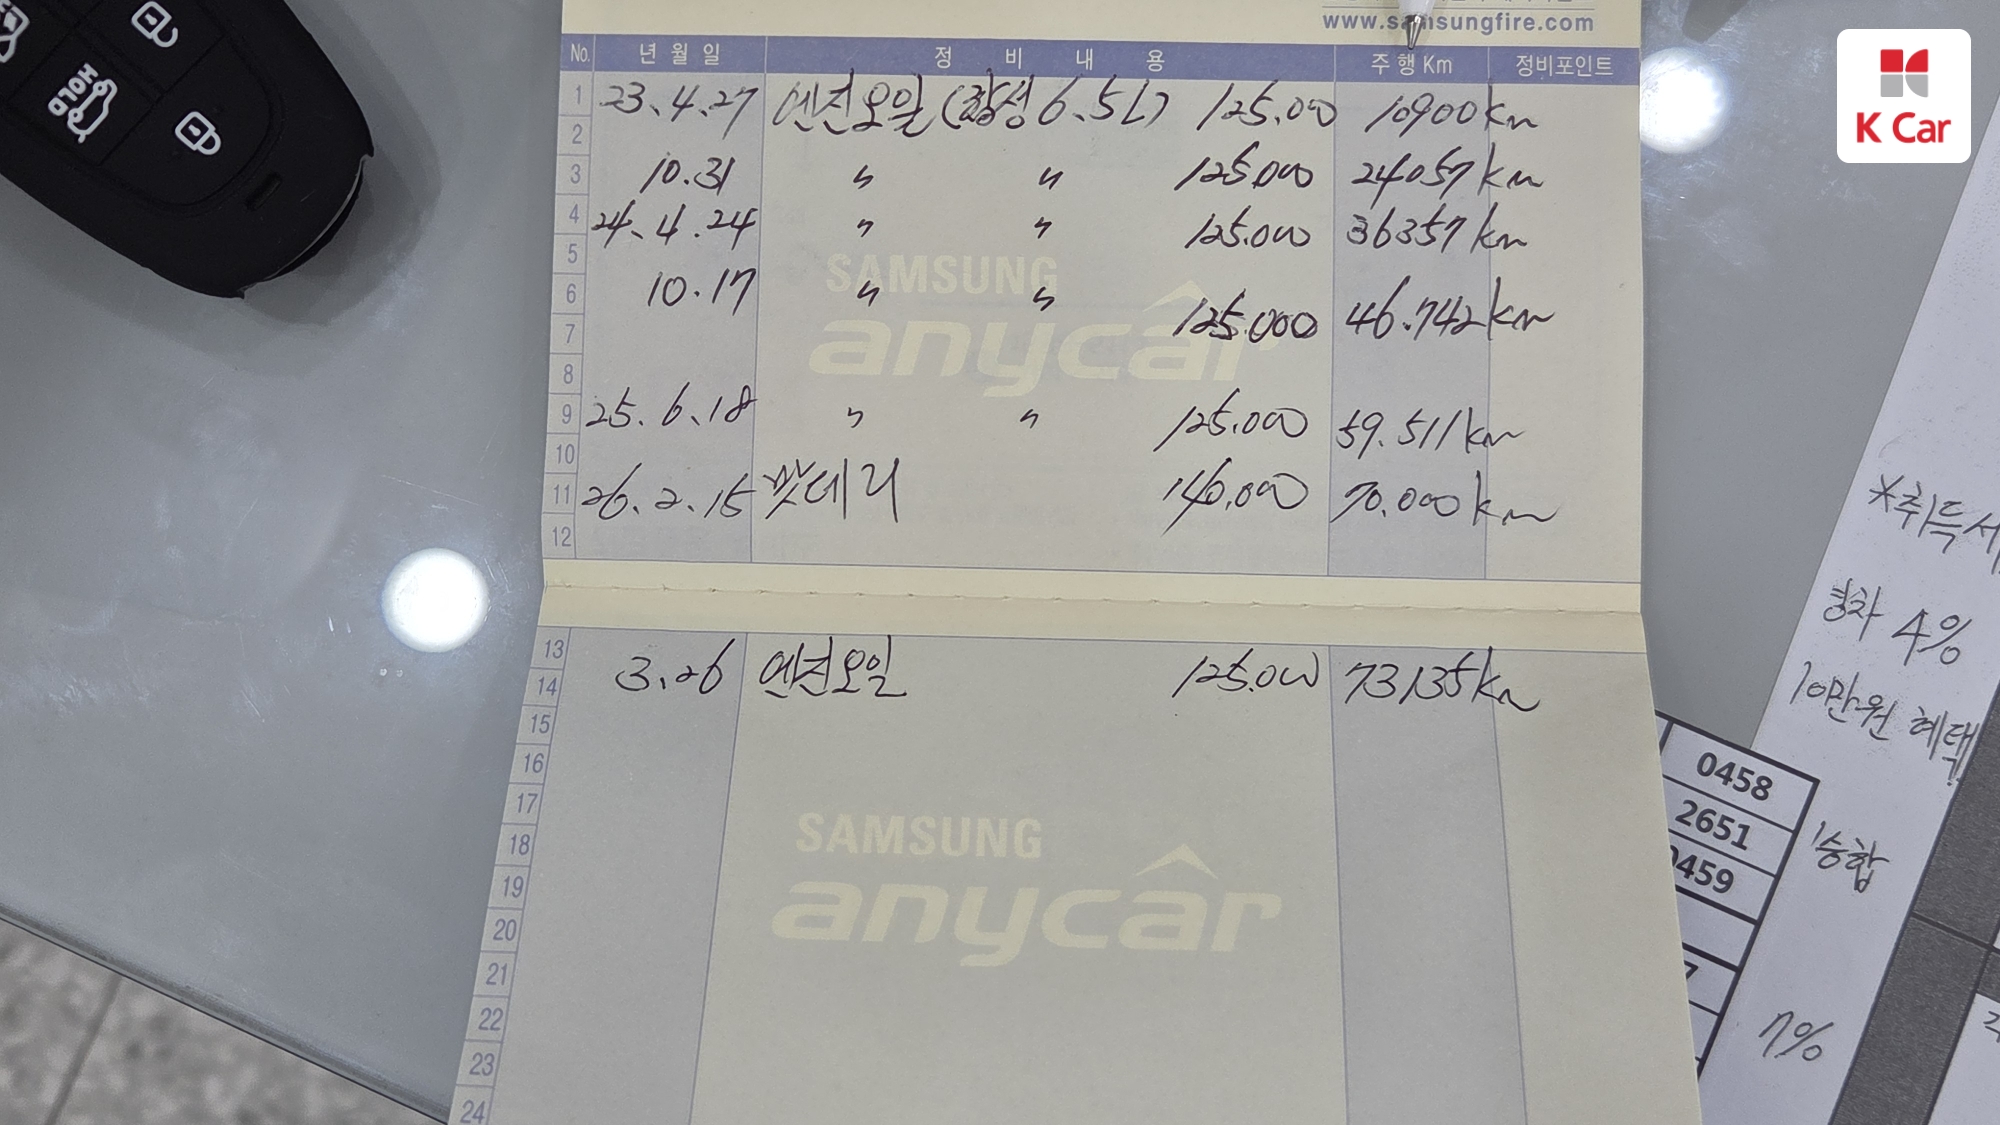 www.samsungfire.com
K Car
No. 년 월 일 정 비 내 용 주 행 Km 정비포인트
1 23.4.27 엔진오일 (합성 6.5L) 125.000 10900km
2
3 10.31 〃 〃 125.000 24057km
4 24.4.24 〃 〃 125.000 36357km
5
SAMSUNG
6 10.17 〃 〃 125.000 46.742km
anycar
7
8
9 25.6.18 〃 〃 125.000 59.511km
10
11 26.2.15 밧데리 140.000 70.000km
12
13
14 3.26 엔진오일 125.000 73135km
15
16
17
18
19
20
21
22
23
24
SAMSUNG
anycar
HOLD
*취득세
경차 4%
10만원 혜택
승합
7%
0458
2651
0459
7